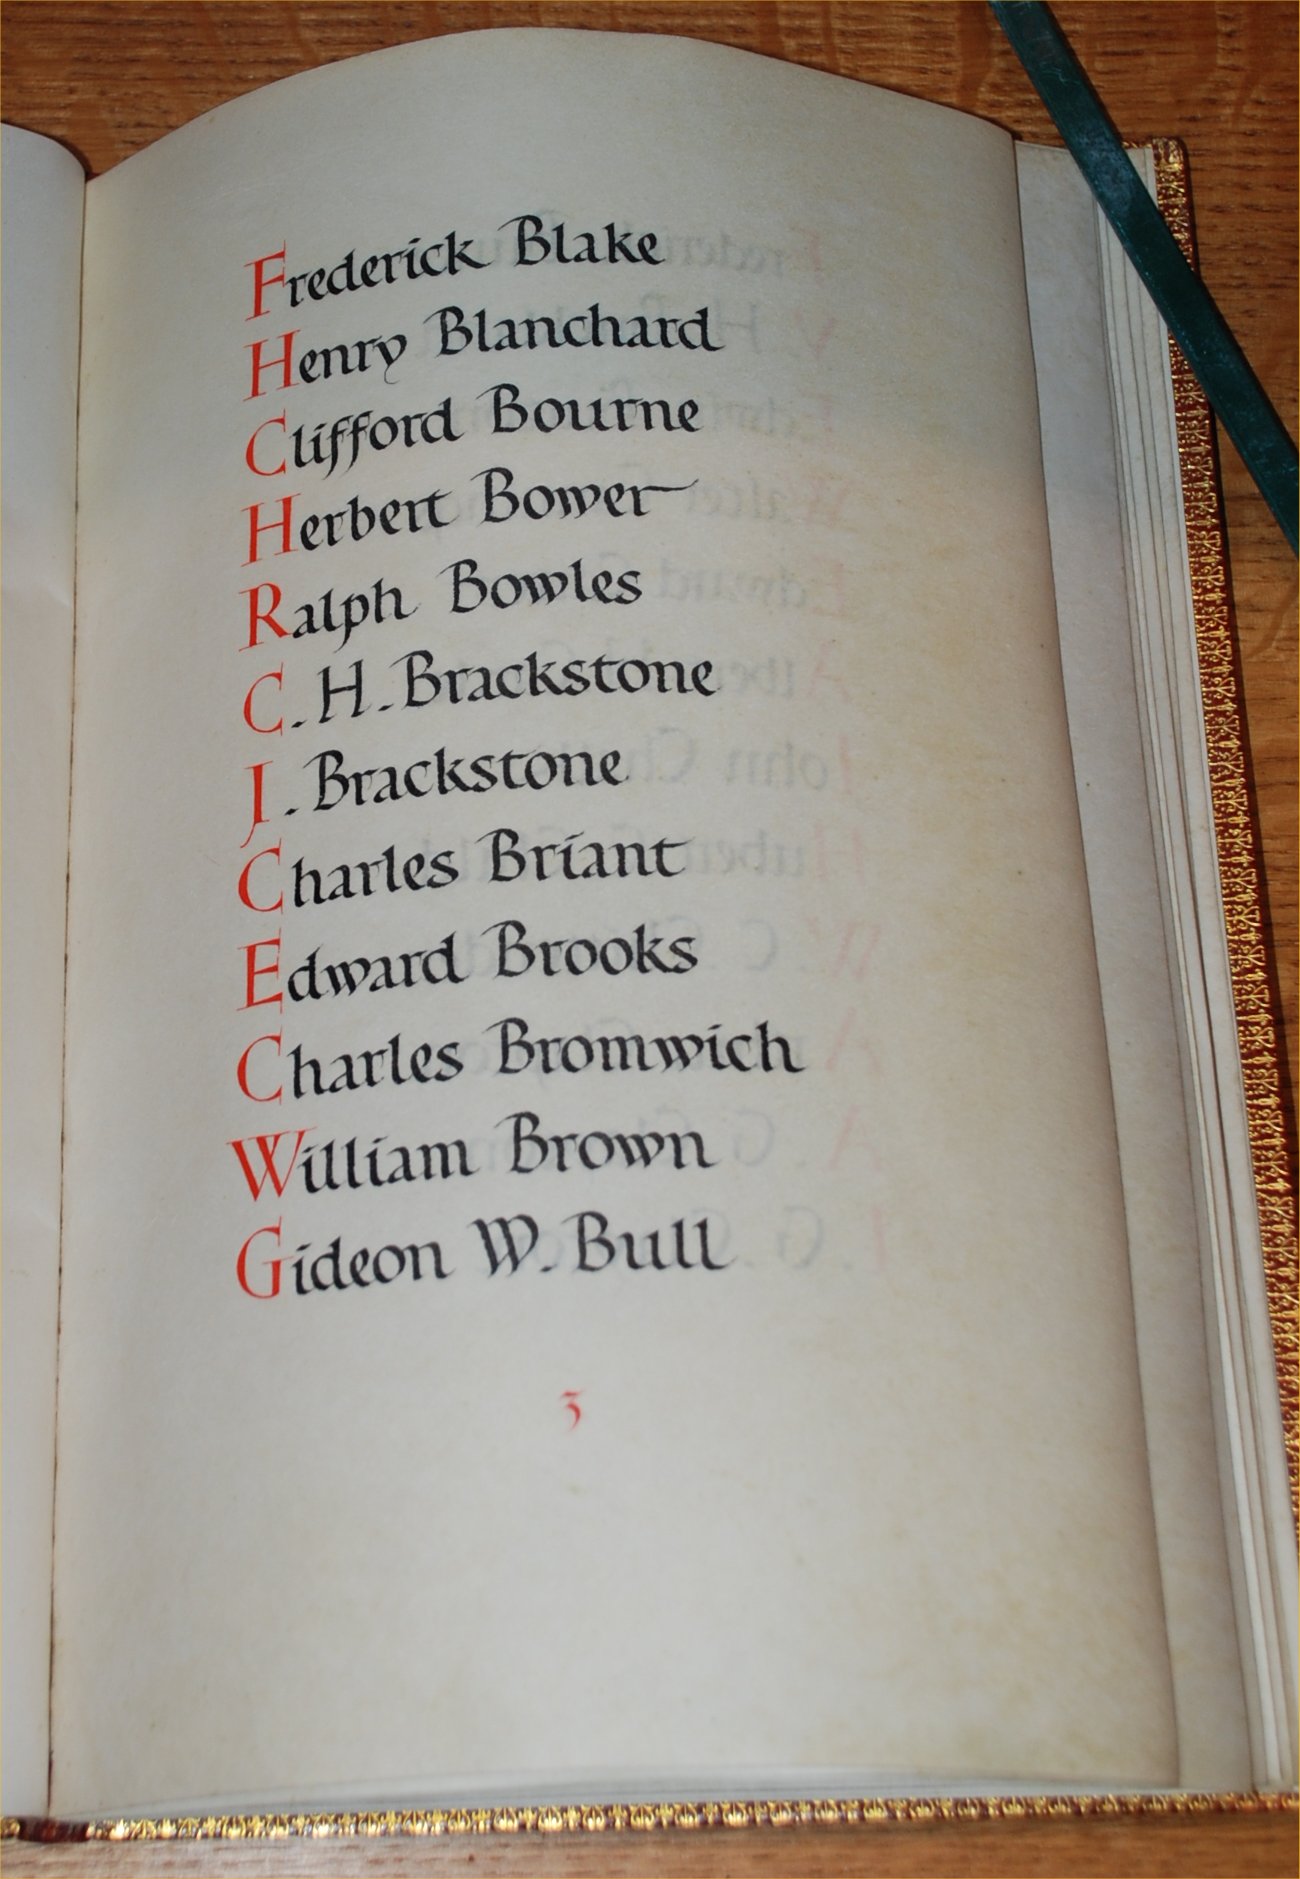 Frederick Blake
Henry Blanchard
Clifford Bourne
Herbert Bower
Ralph Bowles
C. H. Brackstone
J. Brackstone
Charles Briant
Edward Brooks
Charles Bromwich
William Brown
Gideon W. Bull
3